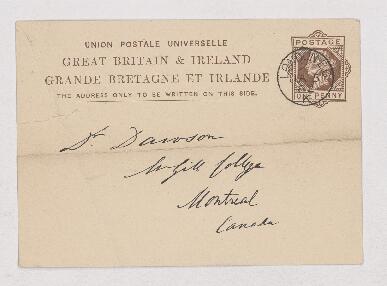 UNION POSTALE UNIVERSELLE
GREAT BRITAIN & IRELAND
GRANDE BRETAGNE ET IRLANDE
THE ADDRESS ONLY TO BE WRITTEN ON THIS SIDE.
POSTAGE
ONE PENNY
Dr. Dawson
McGill College
Montreal
Canada